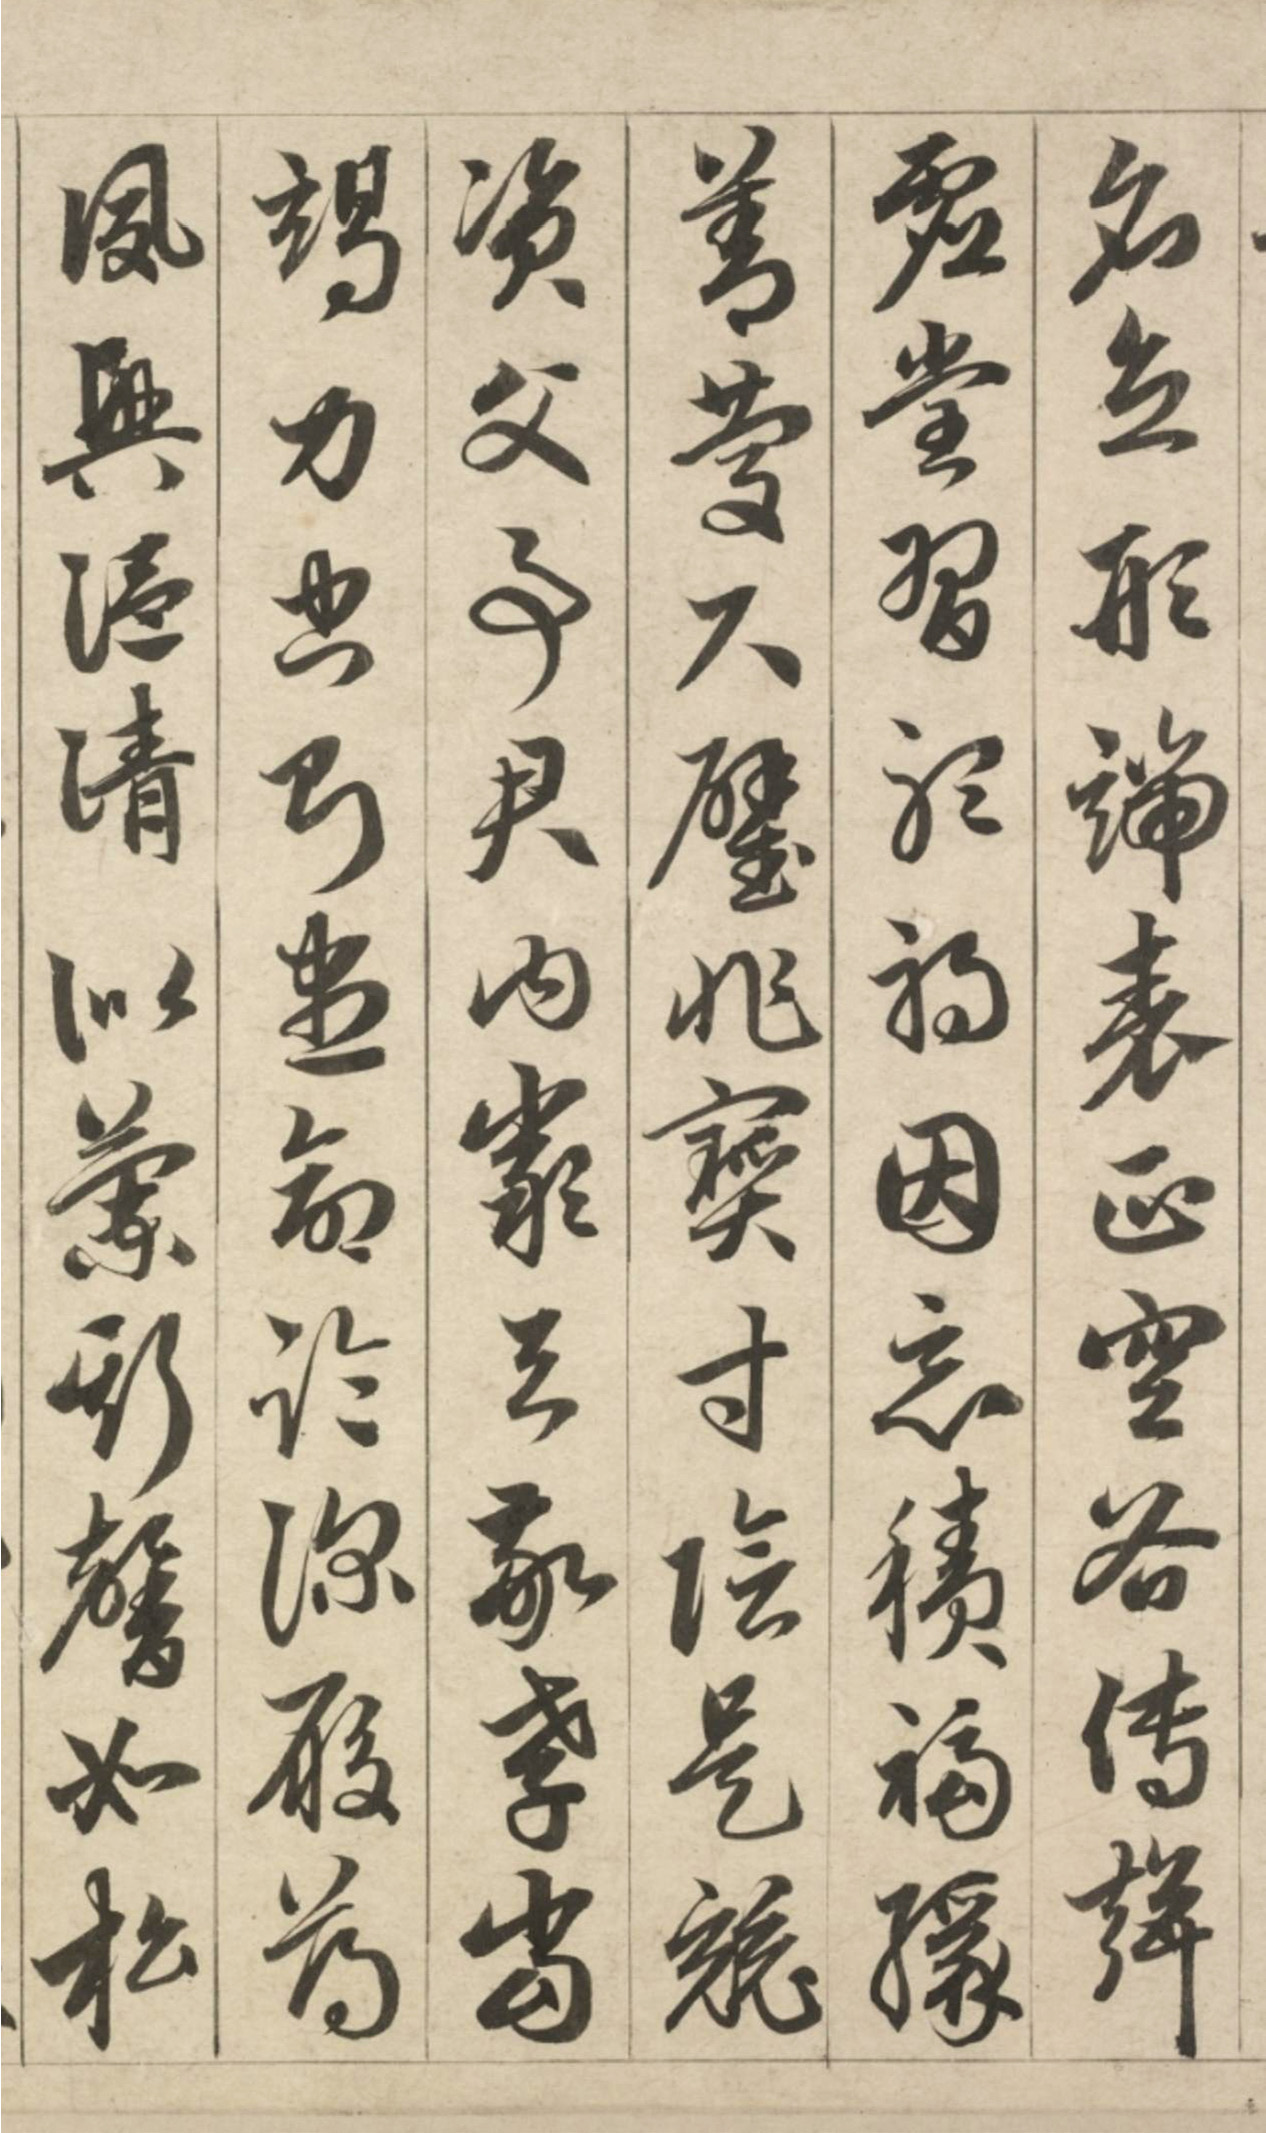 名立形端表正空谷傳聲
虛堂習聽禍因惡積福緣
善慶尺璧非寶寸陰是競
資父事君曰嚴與敬孝當
竭力忠則盡命臨深履薄
夙興溫清似蘭斯馨如松